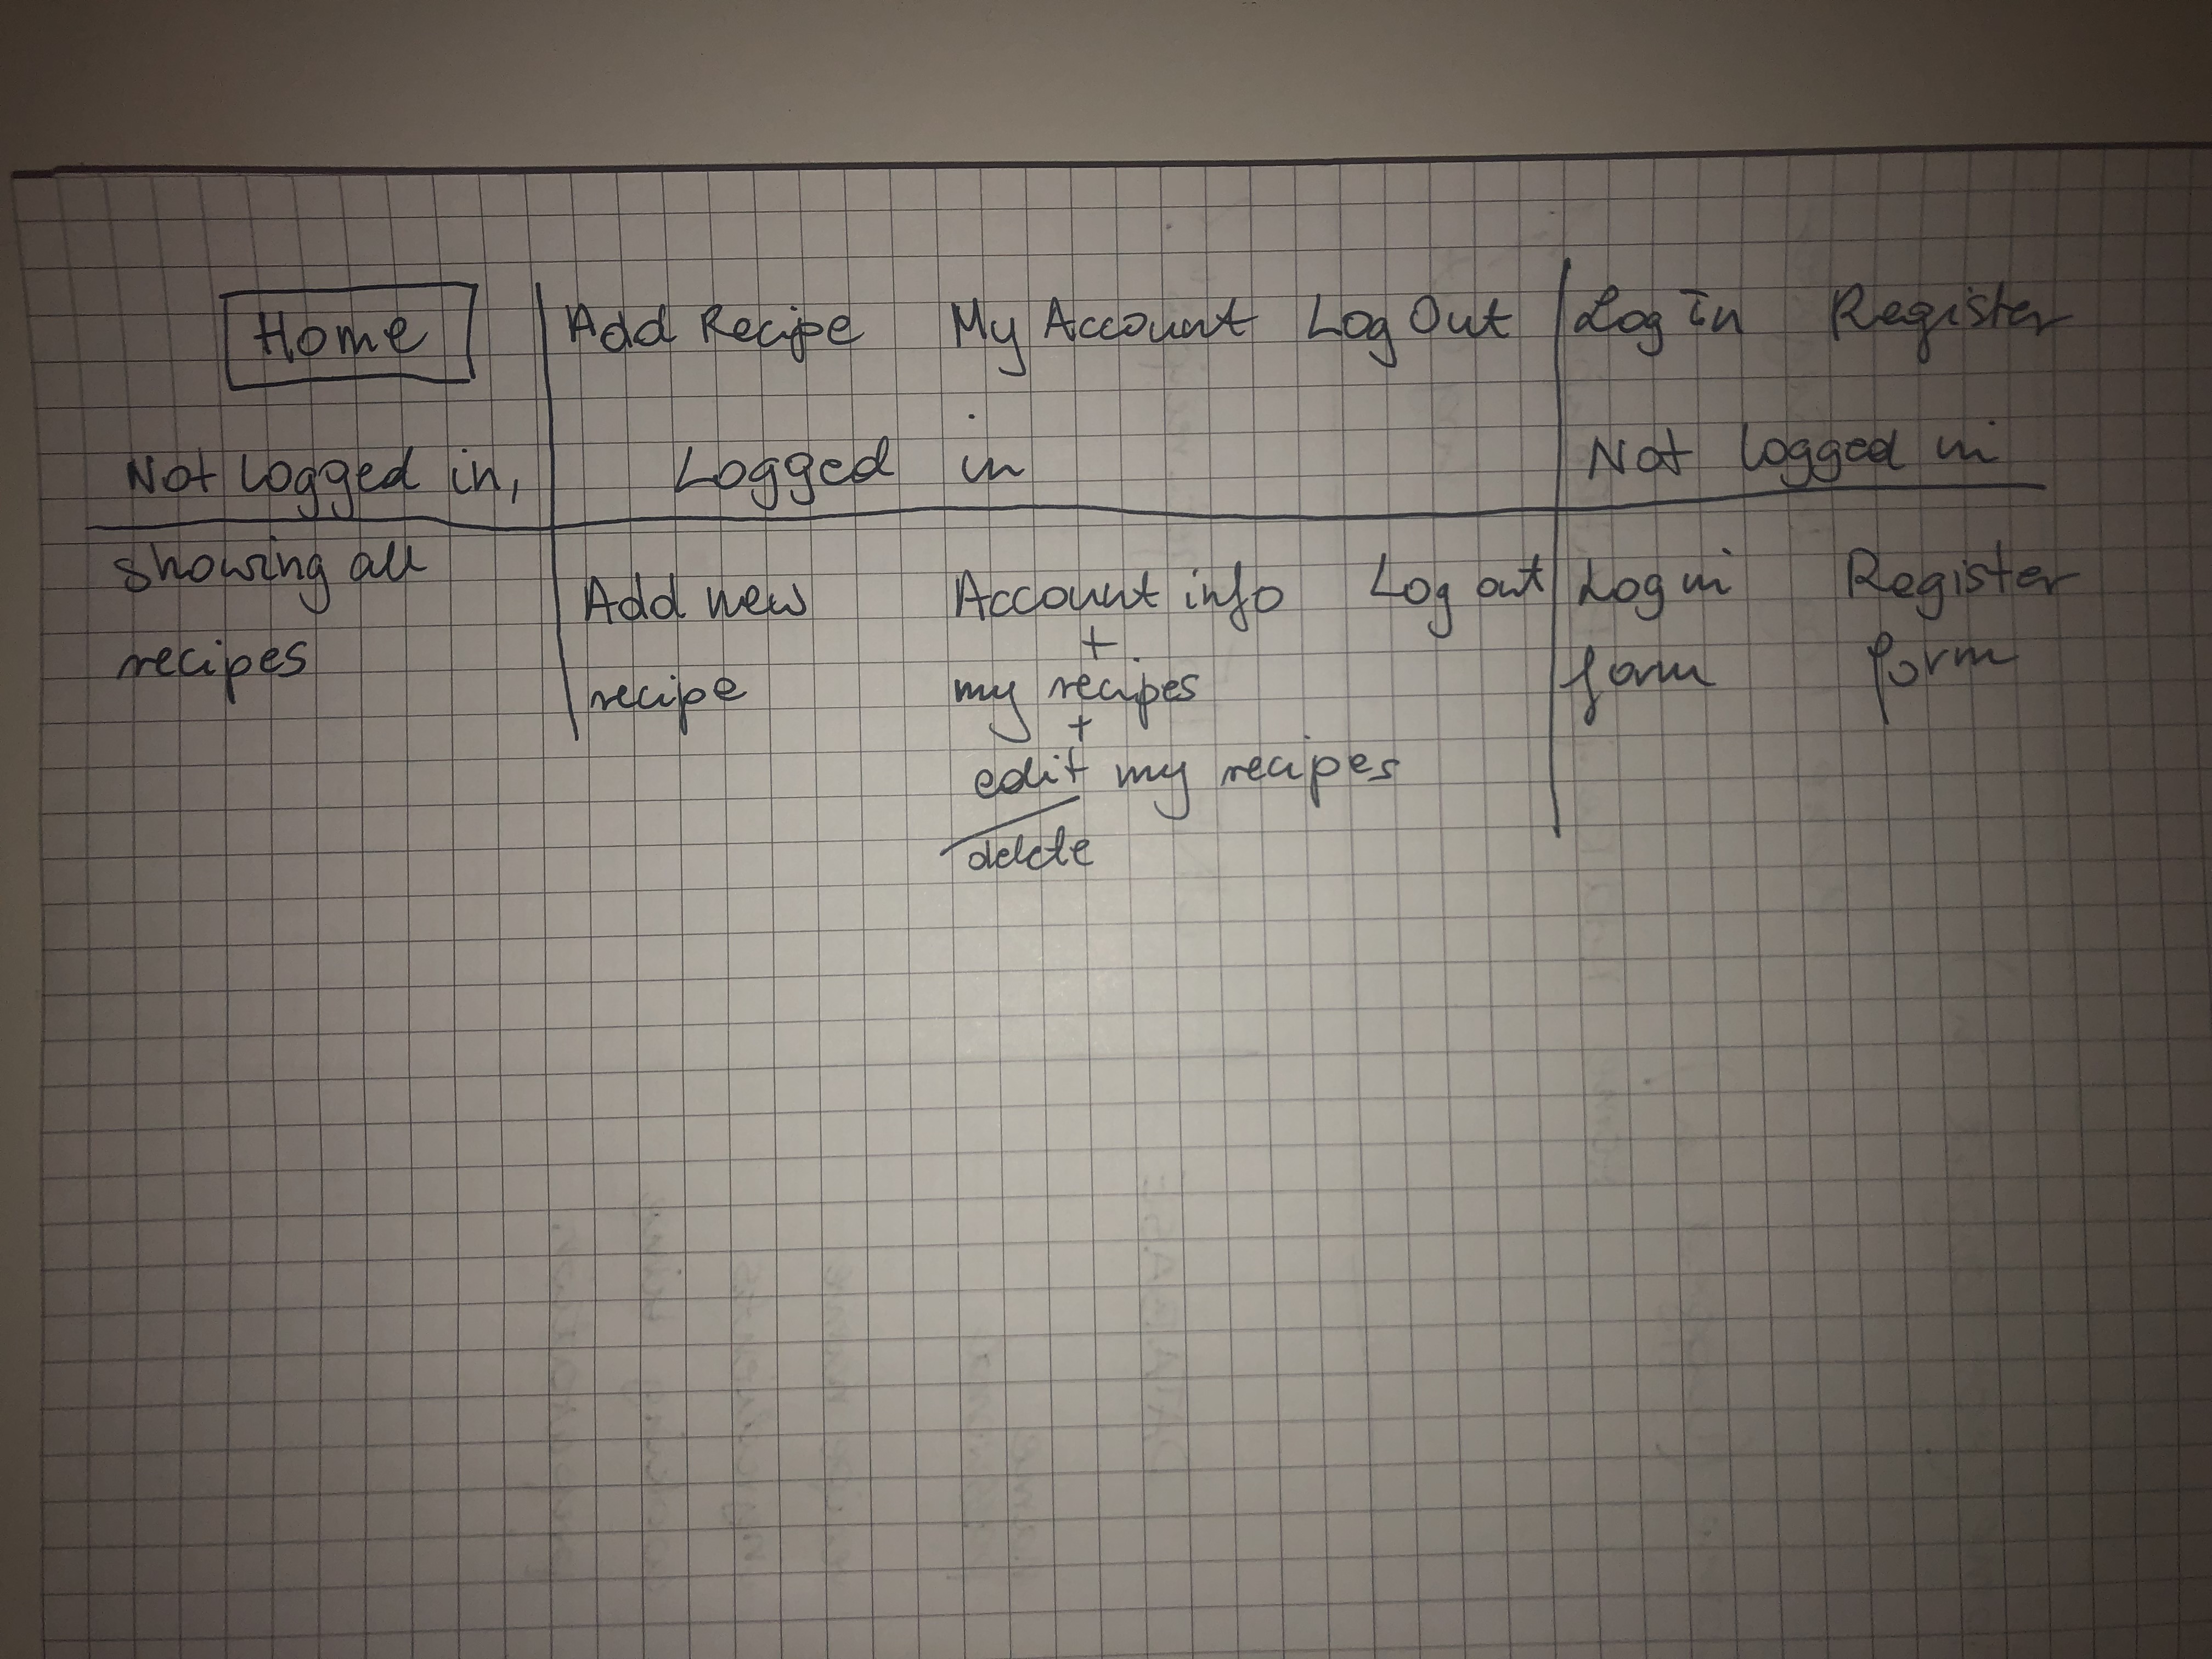 Home Add Recipe My Account Log Out Log In Register
Not logged in, Logged in Not logged in
showing all
recipes
Add new
recipe
Account info
+
my recipes
+
edit my recipes
/
delete
Log out
Log in
form
Register
form
DATABASE